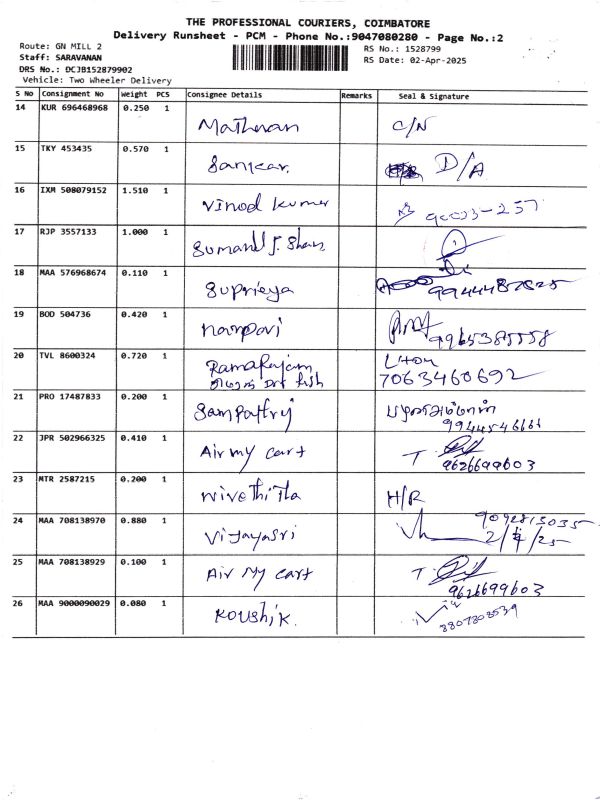 THE PROFESSIONAL COURIERS, COIMBATORE
Delivery Runsheet - PCM - Phone No.:9047080280 - Page No.:2
Route: GN MILL 2
RS No.: 1528799
Staff: SARAVANAN
RS Date: 02-Apr-2025
DRS No.: DCJB152879902
Vehicle: Two Wheeler Delivery
S No Consignment No Weight PCS Consignee Details Remarks Seal & Signature
14 KUR 696468968 0.250 1
Mathuran C/N
15 TKY 453435 0.570 1
Sankar. D/A
16 IXM 508079152 1.510 1
Vinod kumar
17 RJP 3557133 1.000 1
J. Shan
18 MAA 576968674 0.110 1
Suprieya
19 BOD 504736 0.420 1
9965385558
20 TVL 8600324 0.720 1
7063460692
21 PRO 17487833 0.200 1
Sampathrj
22 JPR 502966325 0.410 1
Air my cart T.
9626699603
23 MTR 2587215 0.200 1
Nivethitha H/R
24 MAA 708138970 0.880 1
9092813035
Vijayasri 2/4/25
25 MAA 708138929 0.100 1
Air My cart T.
9626699603
26 MAA 9000090029 0.080 1
Koushik. 8807808539